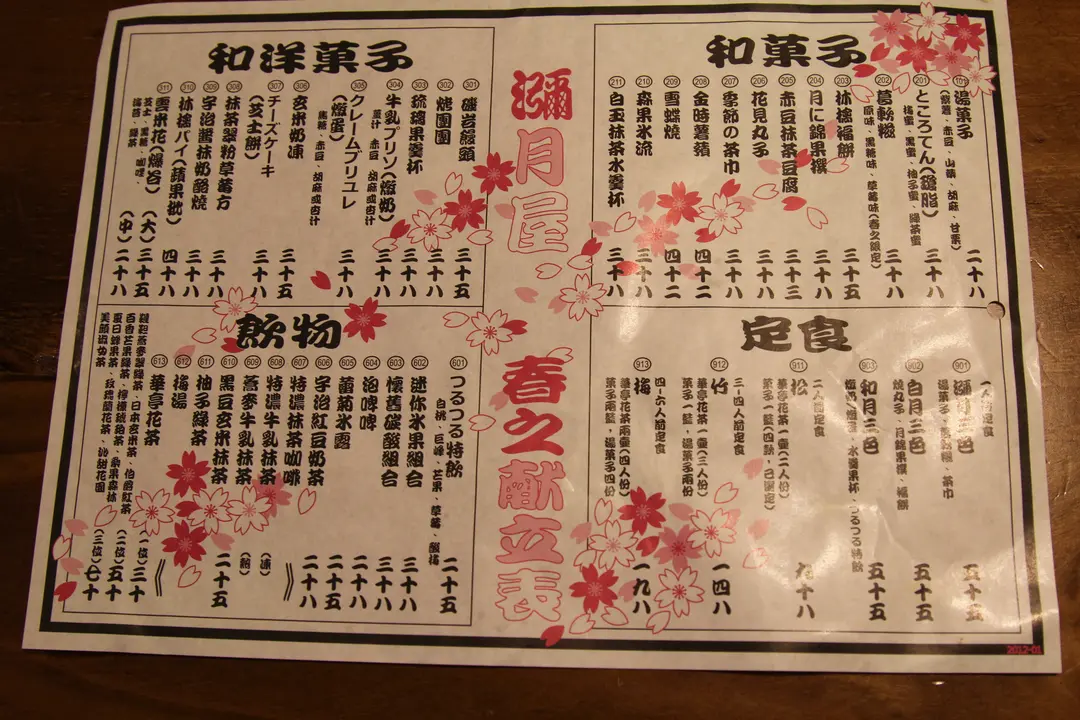 瀰月屋
春之献立表
和菓子
101 湯菓子
(紫薯、赤豆、山藥、胡麻、甘栗)
二十八
201 ところてん(鹽脂)
梅蜜、黑蜜、柚子蜜、綠茶蜜
三十八
202 葛軟糍
原味、黑糖味、草莓味(春之限定)
二十八
203 林檎福餅
三十五
204 月に錦果撰
三十八
205 赤豆抹茶豆腐
三十三
206 花見丸子
三十八
207 季節の茶巾
三十八
208 金時薯蕷
四十二
209 雪蝶燒
四十二
210 森果氷流
三十八
211 白玉抹茶水羹杯
三十八
和洋菓子
301 磯岩饅頭
三十五
302 烤團團
二十八
303 琉璃果羹杯
三十八
304 牛乳プリン(燉奶)
薑汁、赤豆、胡麻或杏汁
三十八
305 クレームブリュレ
(燉蛋)
焦糖、赤豆、胡麻或杏汁
三十八
306 玄米奶凍
三十五
307 チーズケーキ
(芝士餅)
三十八
308 抹茶翠粉草莓方
三十八
309 宇治醬抹奶酪燒
三十八
310 林檎パイ(蘋果批)
四十八
311 雲米花(爆谷)
芝士、黑糖、咖哩、
梅苔、綠茶
(大)三十五
(中)二十八
定食
二人前定食
901
五十五
湯菓子
茶巾
902 白月二色
燒丸子、月錦果撰、福餅
五十五
903 和月三色
水羹果杯、つるつる特飲
五十五
911 松
二人前定食
華亭花茶一壷(二人份)
菓子一籃(四款，己選定)
九十八
912 竹
三-四人前定食
華亭花茶一壷(三人份)
菓子一籃、湯菓子兩份
一四八
913 梅
四-六人前定食
華亭花茶兩壷(四人份)
菓子兩籃、湯菓子四份
一九八
飲物
601 つるつる特飲
白桃、巨峰、芒果、草莓、酸梅
二十五
602 迷你水果組合
三十八
603 懷舊碳酸組合
三十八
604 泡啤啤
二十八
605 菊菊氷露
二十五
606 宇治紅豆奶茶
二十八
607 特濃抹茶咖啡
608 特濃牛乳抹茶
(凍)
609 蕎麥牛乳抹茶
(熱)
610 黑豆玄米抹茶
二十五
611 柚子綠茶
612 梅湯
613 華亭花茶
韃靼蕎麥翠綠茶、日本玄米茶、伯爵紅茶
百香芒果綠茶、檸檬琥珀茶、栗果森林
夏日蜂果茶、玫瑰蘭花茶、沁甜花園
(一位)三十
(二位)五十
(三位)七十
2012-01